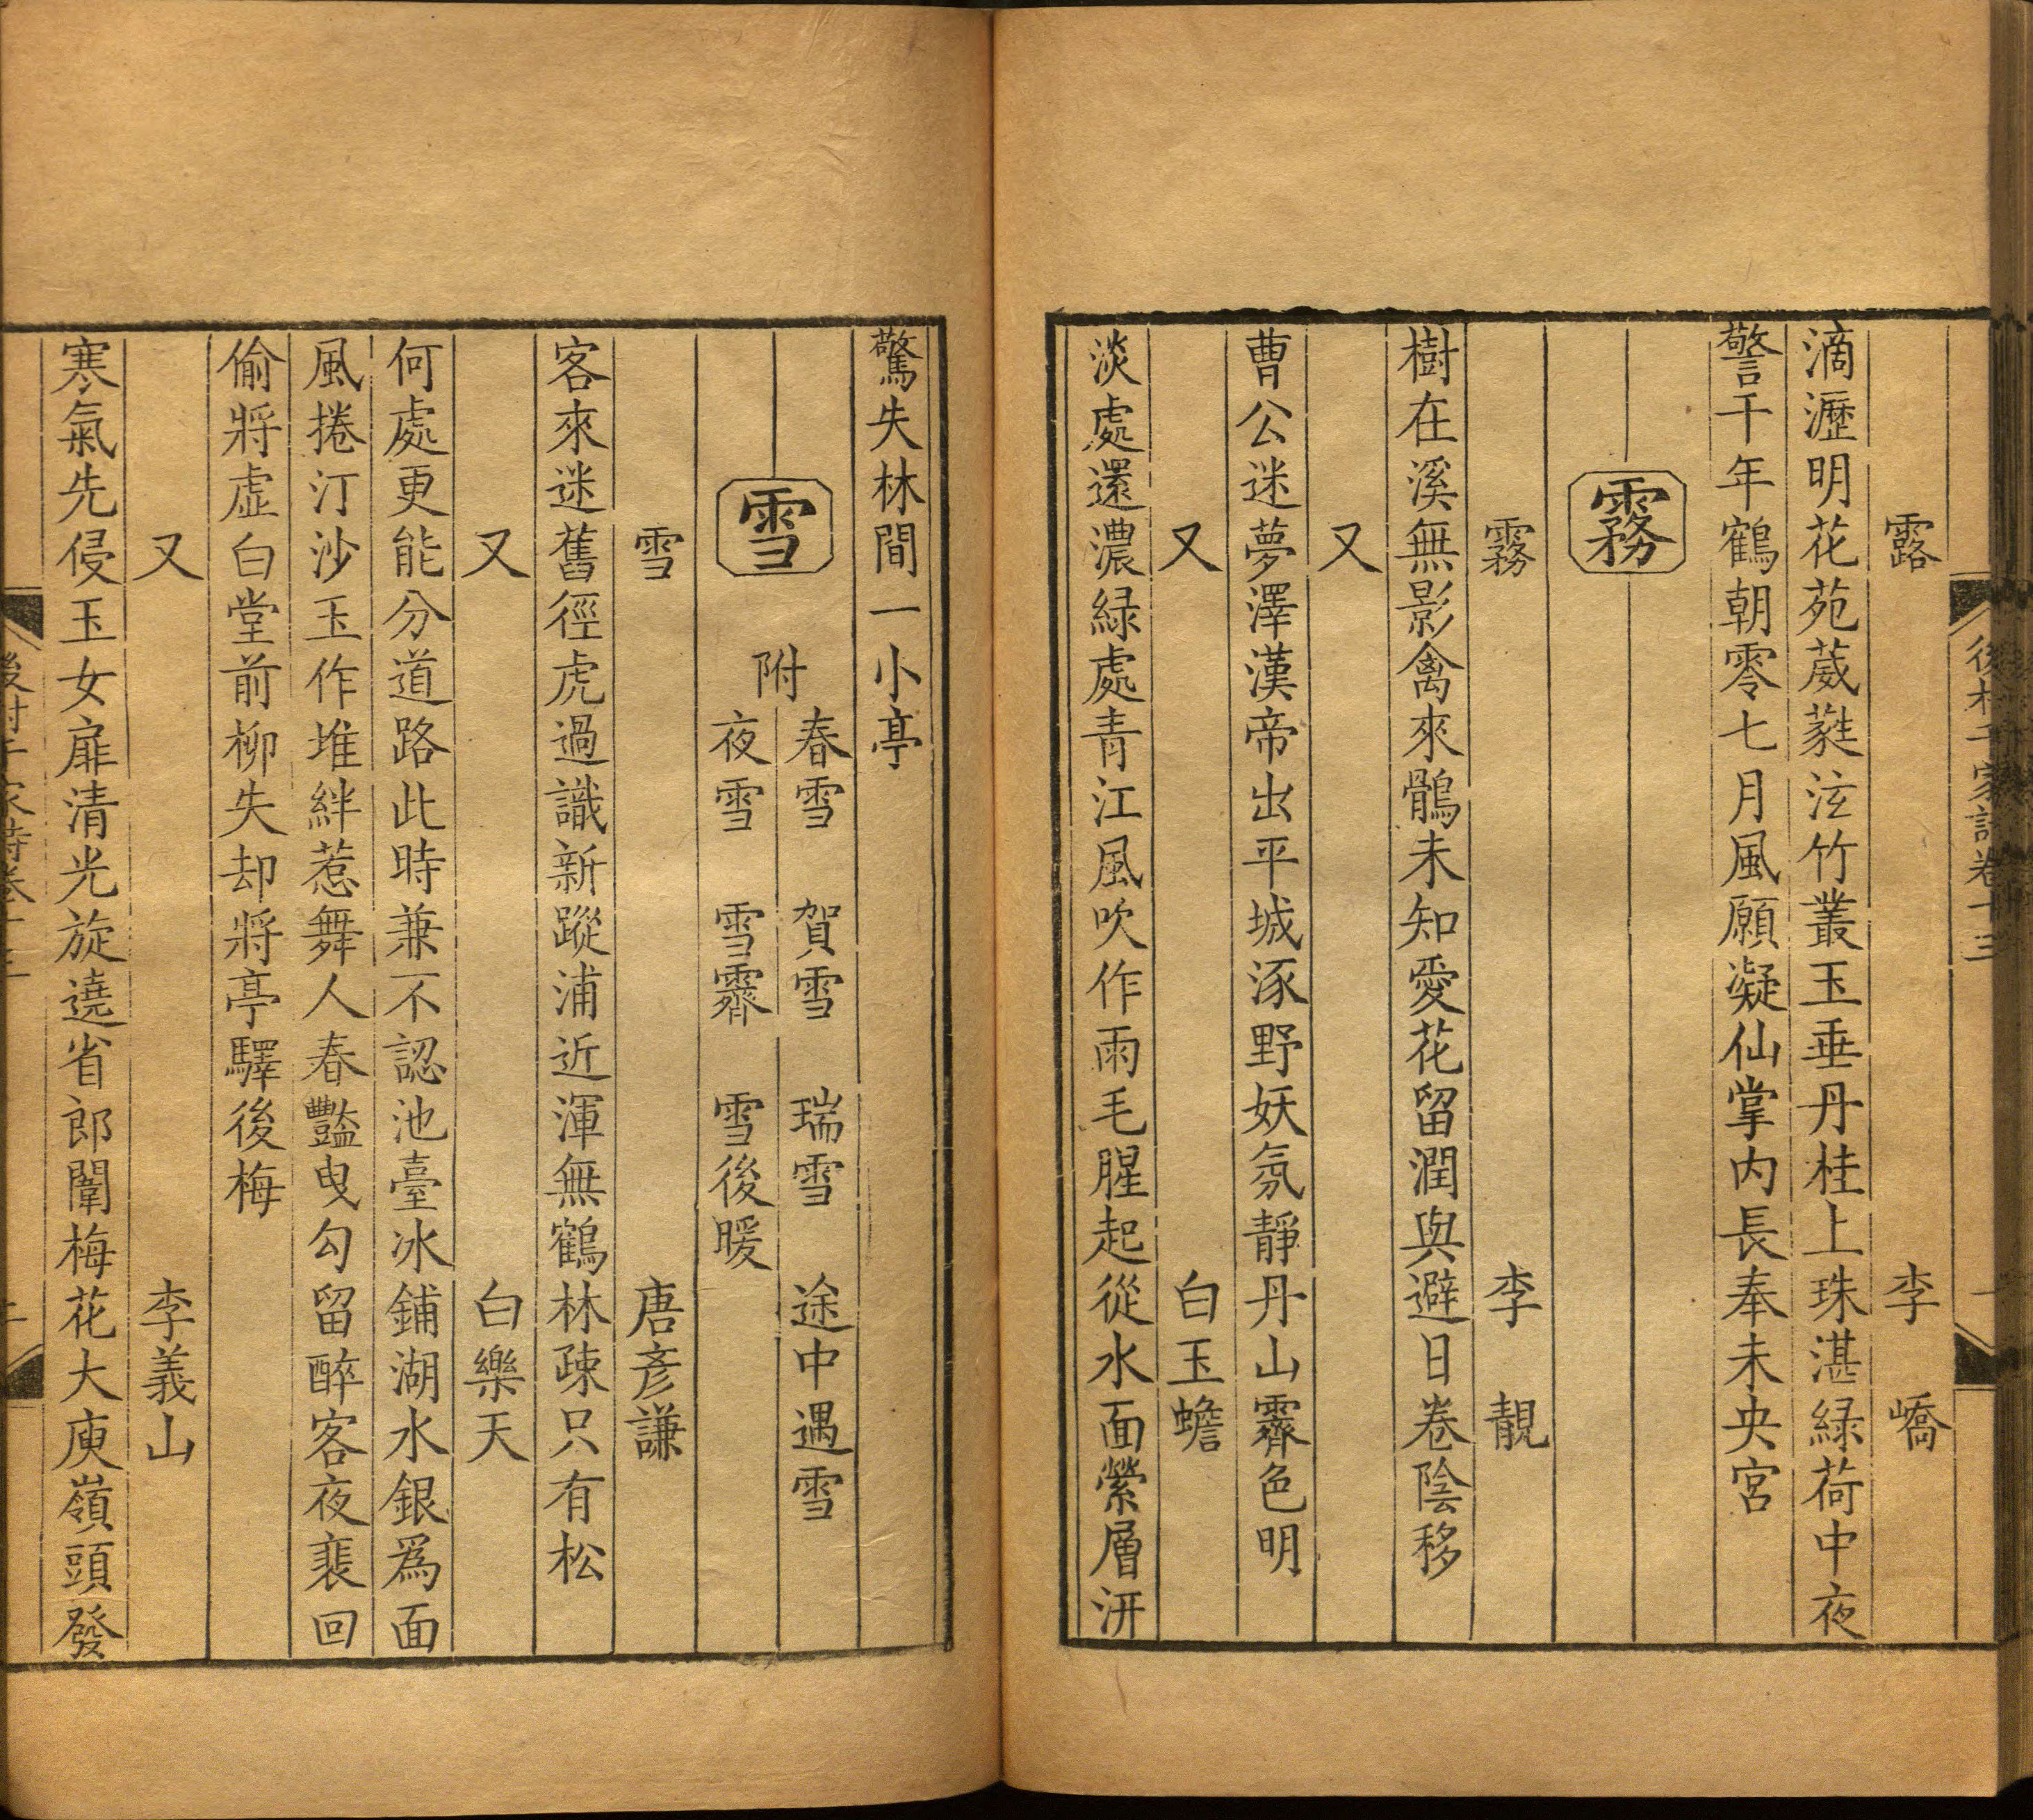 露　李嶠
滴瀝明花苑葳蕤泫竹叢玉垂丹桂上珠湛綠荷中夜
警千年鶴朝零七月風願凝仙掌內長奉未央宮
霧
霧　李靚
樹在溪無影禽來鶻未知愛花留潤與避日卷陰移
又
曹公迷夢澤漢帝出平城涿野妖氛靜丹山霽色明
又　白玉蟾
淡處還濃綠處青江風吹作雨毛腥起從水面縈層汧
驚失林間一小亭
雪　附　春雪　賀雪　瑞雪　途中遇雪
夜雪　雪霽　雪後暖
雪　唐彥謙
客來迷舊徑虎過識新蹤浦近渾無鶴林疎只有松
又　白樂天
何處更能分道路此時兼不認池臺冰鋪湖水銀爲面
風捲汀沙玉作堆絆惹舞人春豔曳勾留醉客夜裴回
偷將虛白堂前柳失却將亭驛後梅
又　李義山
寒氣先侵玉女扉清光旋遶省郎闈梅花大庾嶺頭發